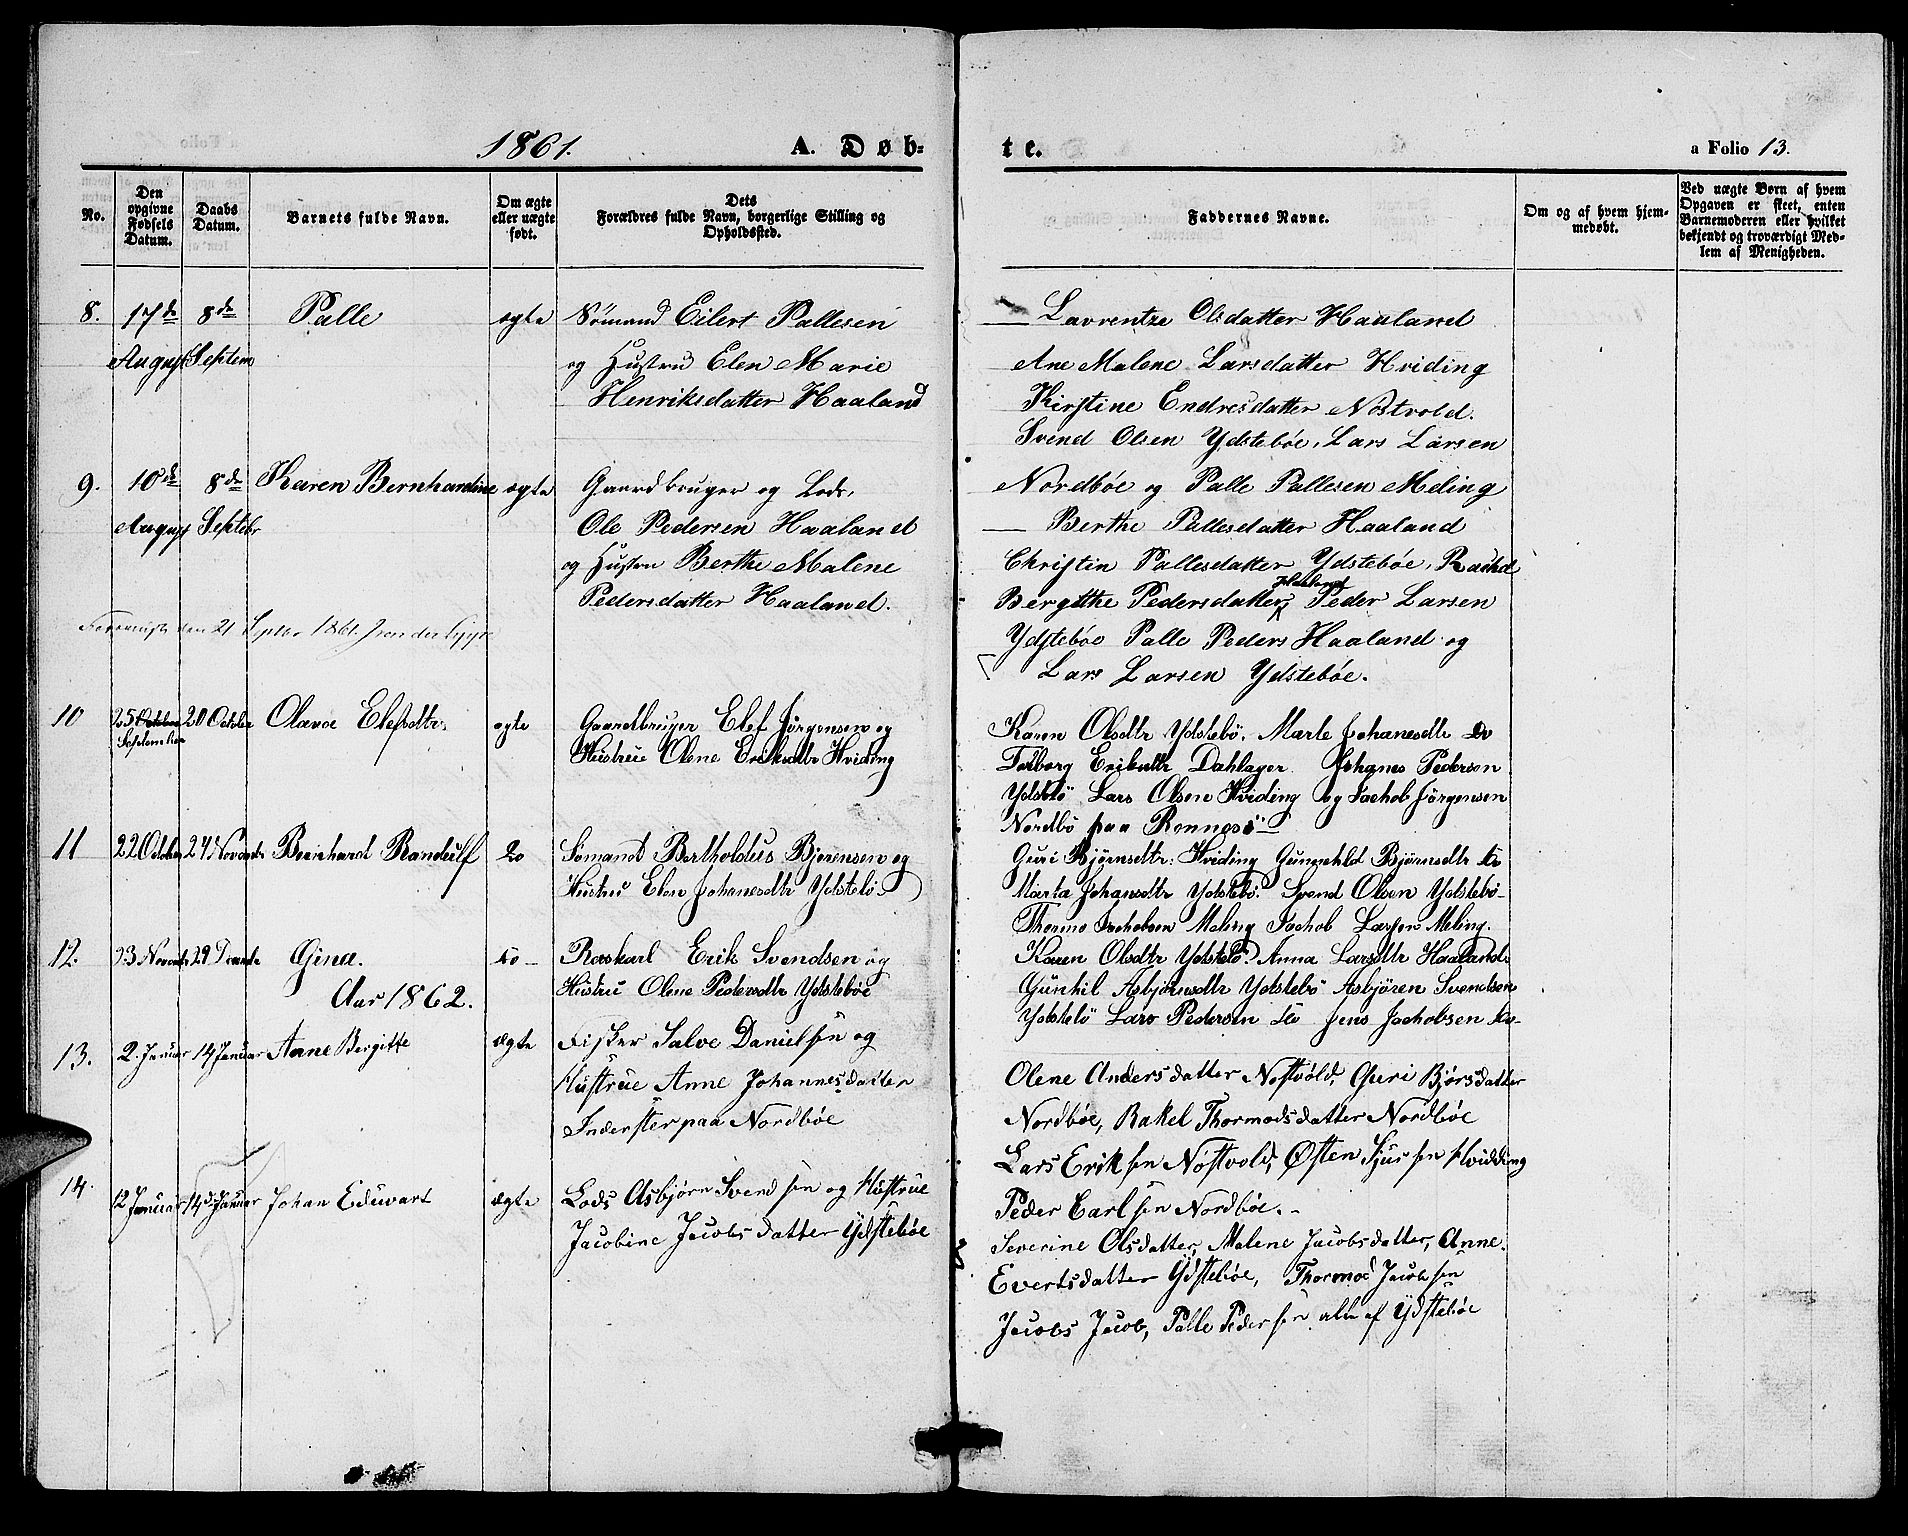 1861. A. Døb=
te. a Folio 13.
No.
Den opgivne Fødsels Datum.
Daabs Datum.
Barnets fulde Navn.
Om ægte eller uægte født.
Dets Forældres fulde Navn, borgerlige Stilling og Opholdssted.
Faddernes Navne.
Om og af hvem hjemmedøbt.
Ved uægte Børn af hvem Opgaven er skeet, enten Barnemoderen eller hvilket bekjendt og troværdigt Medlem af Menigheden.
8. 17de August 8de Septem Palle ægte
Sømand Eilert Pallesen
og Hustru Elen Marie
Henriksdatter Haaland
Lavrentze Olsdatter Haaland
Ane Malene Larsdatter Hviding
Kirstine Endresdatter Nostvold.
Svend Olsen Ydstebøe, Lars Larsen
Nordbøe og Palle Pallesen Meling
9. 10de August 8de Septebr Karen Bernhardine ægte
Gaardbruger og Lods,
Ole Pedersen Haaland
og Hustru Berthe Malene
Pedersdatter Haaland.
den 21 Septbr 1861
Berthe Pallesdatter Haaland
Christin Pallesdatter Ydstebøe, Rachel
Bergitthe Pedersdatter Haaland, Peder Larsen
Ydstebøe Palle Peders Haaland og
Lars Larsen Ydstebøe.
10 25 October September 20 October Olavoe Elefsdtr. ægte
Gaardbruger Elef Jörgensen og
Hustrue Olene Eriksdtr Hviding
Karen Olsdtr Ydstebö. Marte Johanesdtr Do
Torborg Eriksdtr Dahlager Johanes Pedersen
Ydstebö Lars Olsen Hviding og Jachob Jörgensen
Nordbö paa Rennesö
11 22 October 24 Novembr Bernhard Randulf Do
Sømand Bertholdus Bjørensen og
Hustru Elen Johanesdtr Ydstebö
Guri Bjørnsdtr: Hviding Gunnehld Bjørnsdtr Do
Marta Johansdtr Ydstebö. Svend Olsen Ydstebö
Thormo Jachobsen Meling Jachob Larsen Meling.
12. 23 Novembr 29 Decembr Gina. Do
Huskarl Erik Svendsen og
Hustru Olene Pedersdtr Ydstebøe
Karen Olsdtr Ydstebö. Anna Larsdtr Haaland
Günhil Asbjørnsdtr Ydstebö Asbjøren Svendsen
Ydstebö Lars Pedersen Do Jens Jachobsen Do
Aar 1862.
13. 2. Januar 14 Januar Anne Bergitte ægte
Fisker Salve Danielsen og
Hustrue Anne Johannesdatter
Inderster paa Nordbøe
Olene Andersdatter Nostvold, Guri Bjørsdatter
Nordbøe, Rakel Thormodsdatter Nordbøe
Lars Eriksen Nostvold, Østen Sjursen Hvidding
Peder Carlsen Nordbøe.
14. 12 Januar 14d Januar Johan Eduvart ægte
Lods Asbjørn Svendsen og Hustrue
Jacobine Jacobsdatter Ydstebøe
Severine Olsdatter, Malene Jacobsdatter, Anne
Evertsdatter Ydstebøe, Thormod Jacobsen
Jacobs Jacob, Palle Pedersen alle af Ydstebøe